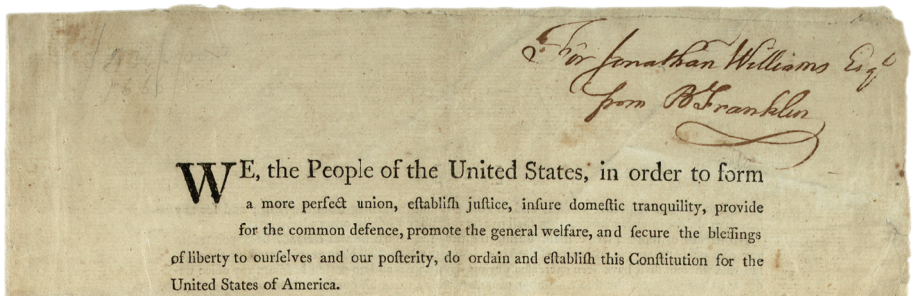 For Jonathan Williams Esqr
from B Franklin
WE, the People of the United States, in order to form
a more perfect union, eſtabliſh juſtice, inſure domeſtic tranquility, provide
for the common defence, promote the general welfare, and ſecure the bleſſings
of liberty to ourſelves and our poſterity, do ordain and eſtabliſh this Conſtitution for the
United States of America.